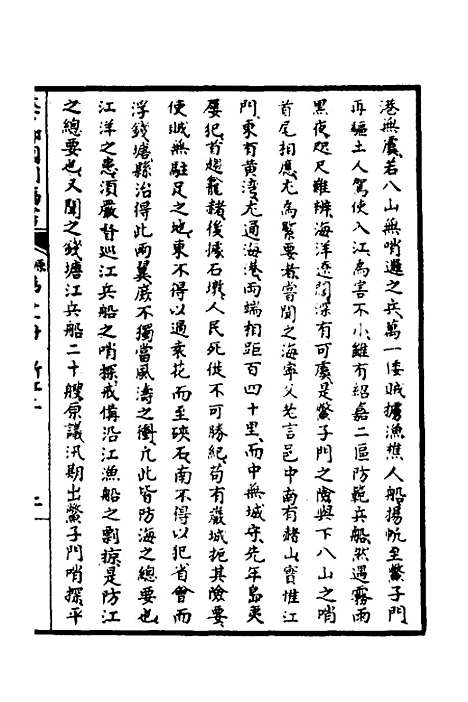 港無虞若八山無哨邏之兵萬一倭賊擄漁樵人船揚帆至鱉子門
再驅土人駕使入江為害不小雖有紹嘉二區防範兵船然遇霧雨
黑夜咫尺難辨海洋遼闊深有可虞是鱉子門之險與下八山之哨
首尾相應尤為緊要者嘗聞之海寧父老言邑中南有赭山實惟江
門東有黃灣尤通海港兩端相距百四十里而中無城守先年島夷
屢犯首趨龕赭後據石墩人民死徙不可勝紀苟有嚴城扼其險要
使賊無駐足之地東不得以過袁花而至硤石南不得以犯省會而
浮錢塘縣治得此兩翼庶不獨當風濤之衝凡此皆防海之總要也
江洋之患須嚴督巡江兵船之哨探戒備沿江漁船之剽掠是防江
之總要也又聞之錢塘江兵船二十艘原議汛期出鱉子門哨探平